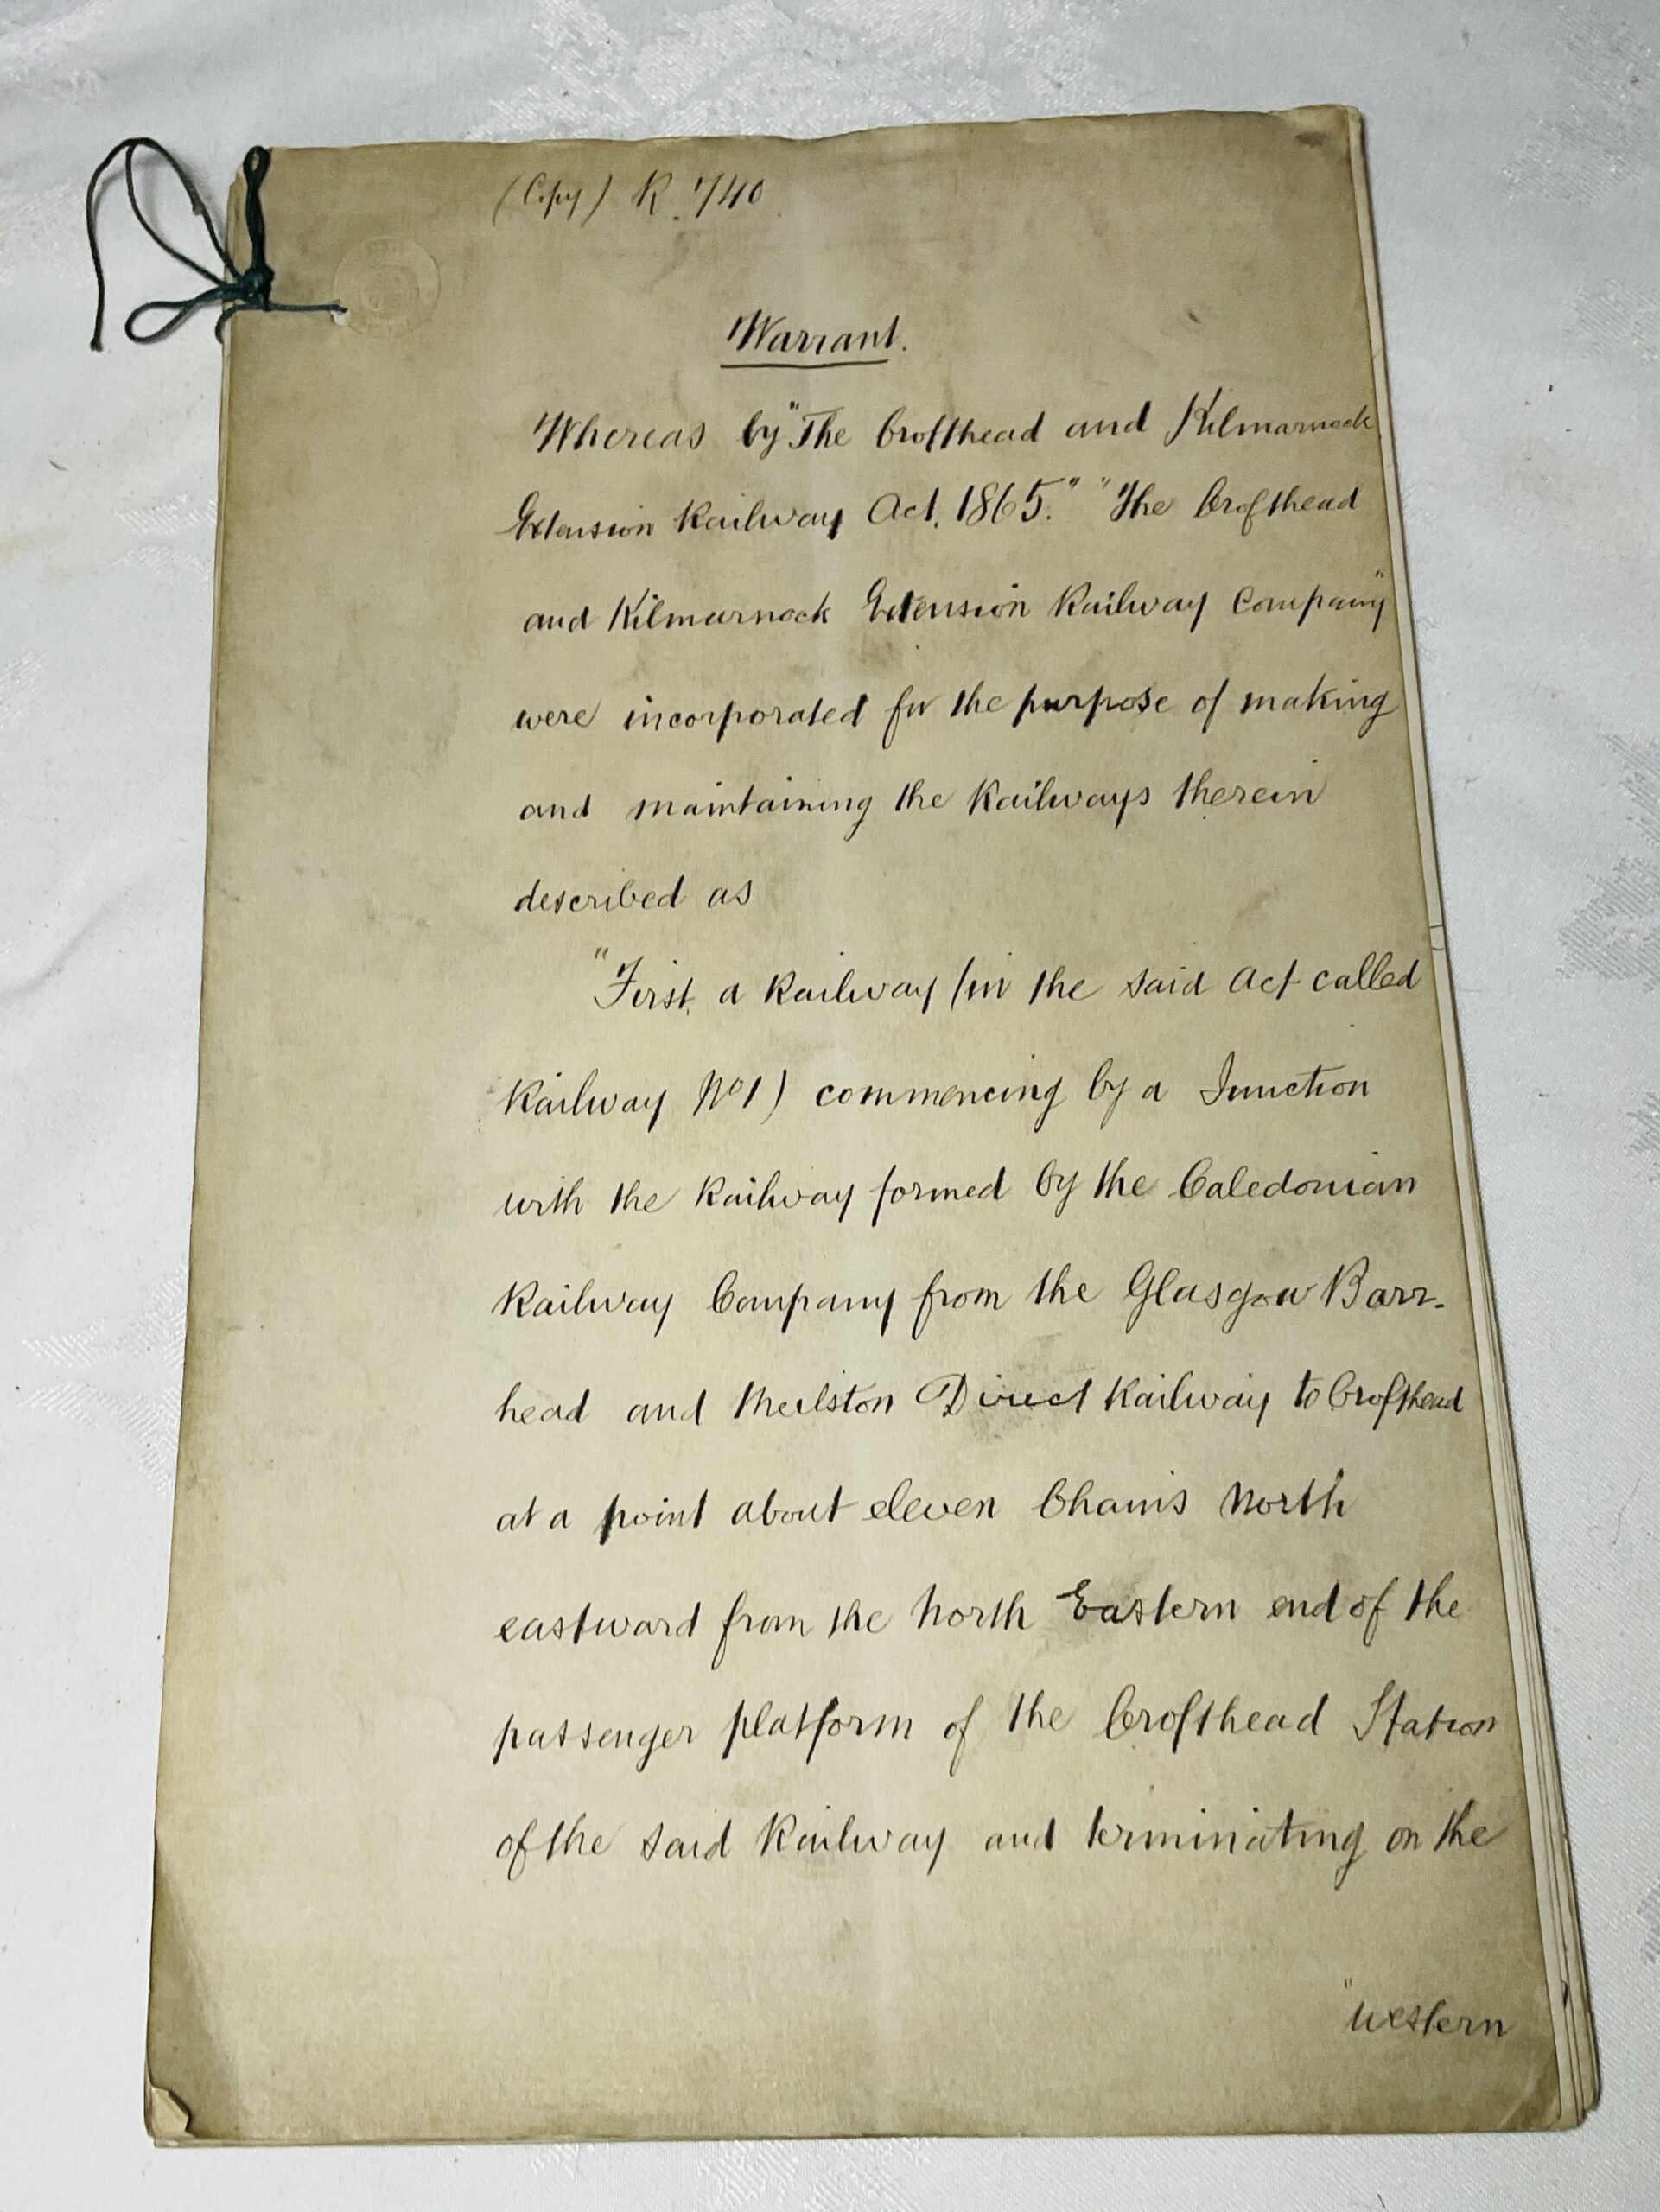 (Copy) R. 740
Warrant.
Whereas by "The Crofthead and Kilmarnock
Extension Railway Act. 1865." "The Crofthead
and Kilmarnock Extension Railway Company"
were incorporated for the purpose of making
and maintaining the Railways therein
described as
"First, a Railway (in the said Act called
Railway No 1) commencing by a Junction
with the Railway formed by the Caledonian
Railway Company from the Glasgow Barr-
head and Neilston Direct Railway to Crofthead
at a point about eleven Chains North
eastward from the North Eastern end of the
passenger platform of the Crofthead Station
of the said Railway and terminating on the
"western